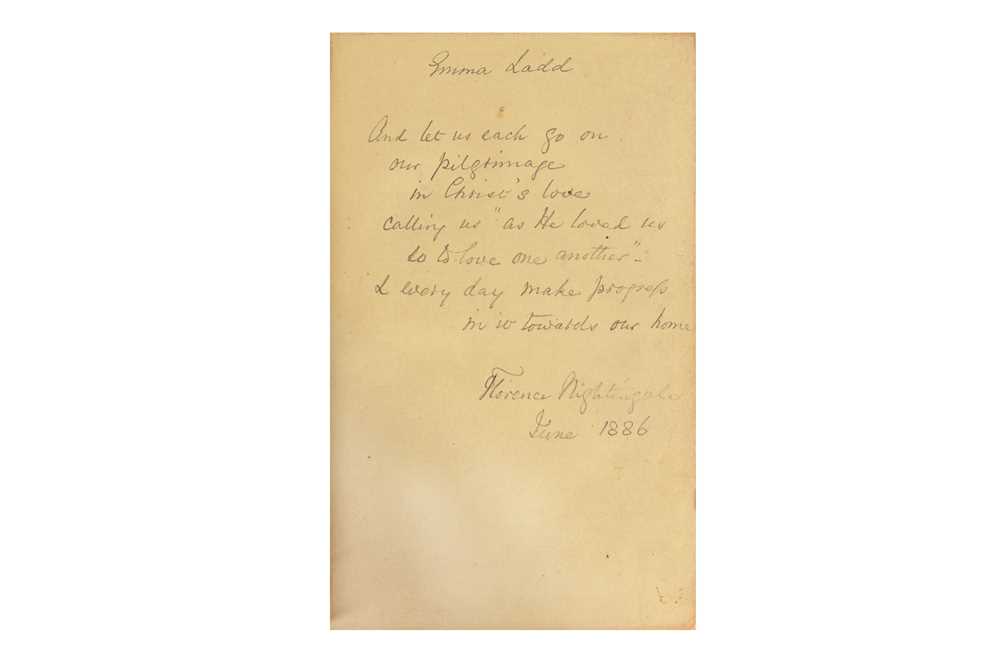 Emma Ladd
And let us each go on
our pilgrimage
in Christ's love
calling us "as He loved us
so to love one another" -
& every day make progress
in it towards our home
Florence Nightingale
June 1886